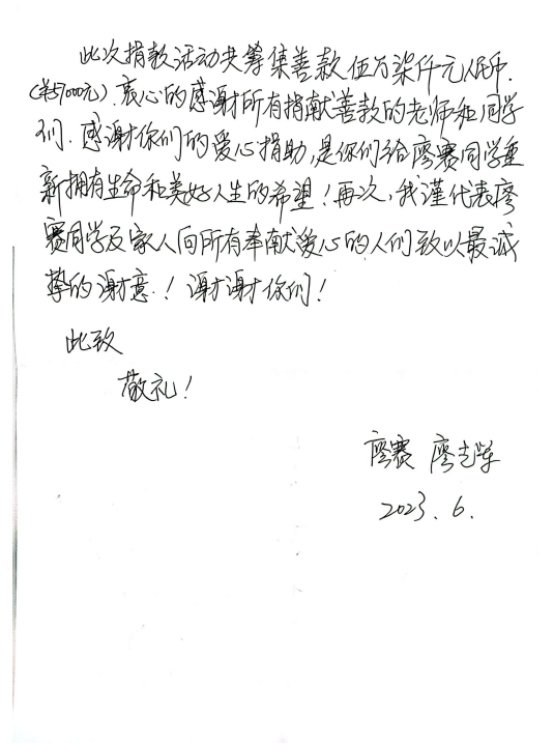 此次捐款活动共筹集善款伍万柒仟元人民币.
(￥57000元). 衷心的感谢所有捐献善款的老师和同学
们. 感谢你们的爱心捐助, 是你们给廖赛同学重
新拥有生命和美好人生的希望！再次, 我谨代表廖
赛同学及家人向所有奉献爱心的人们致以最诚
挚的谢意.！谢谢你们！
此致
敬礼！
廖赛 廖志
2023.6.